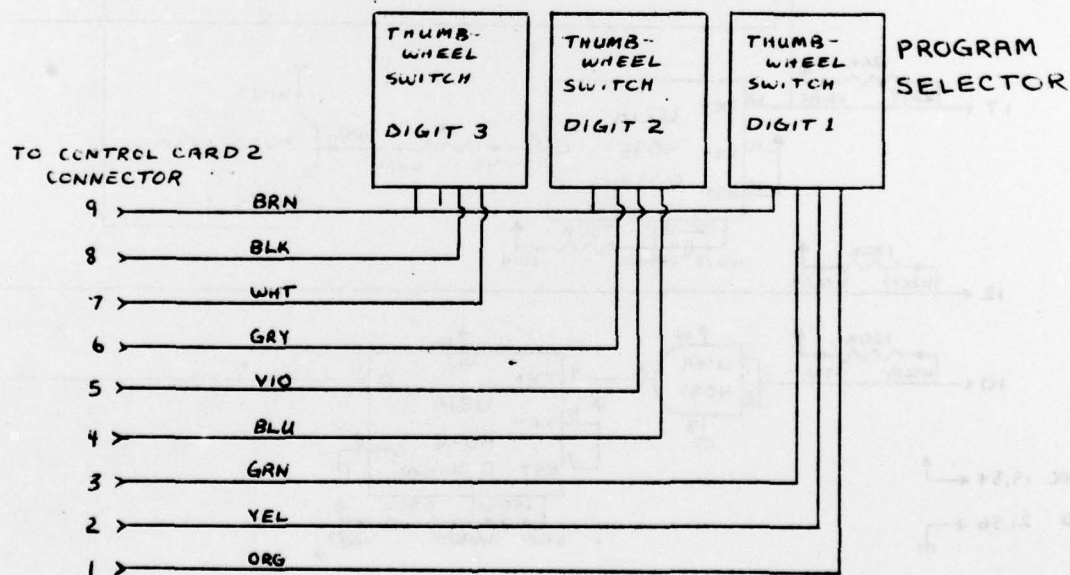 THUMB-
WHEEL
SWITCH
DIGIT 3
THUMB-
WHEEL
SWITCH
DIGIT 2
THUMB-
WHEEL
SWITCH
DIGIT 1
PROGRAM
SELECTOR
TO CONTROL CARD 2
CONNECTOR
9 BRN
8 BLK
7 WHT
6 GRY
5 VIO
4 BLU
3 GRN
2 YEL
1 ORG